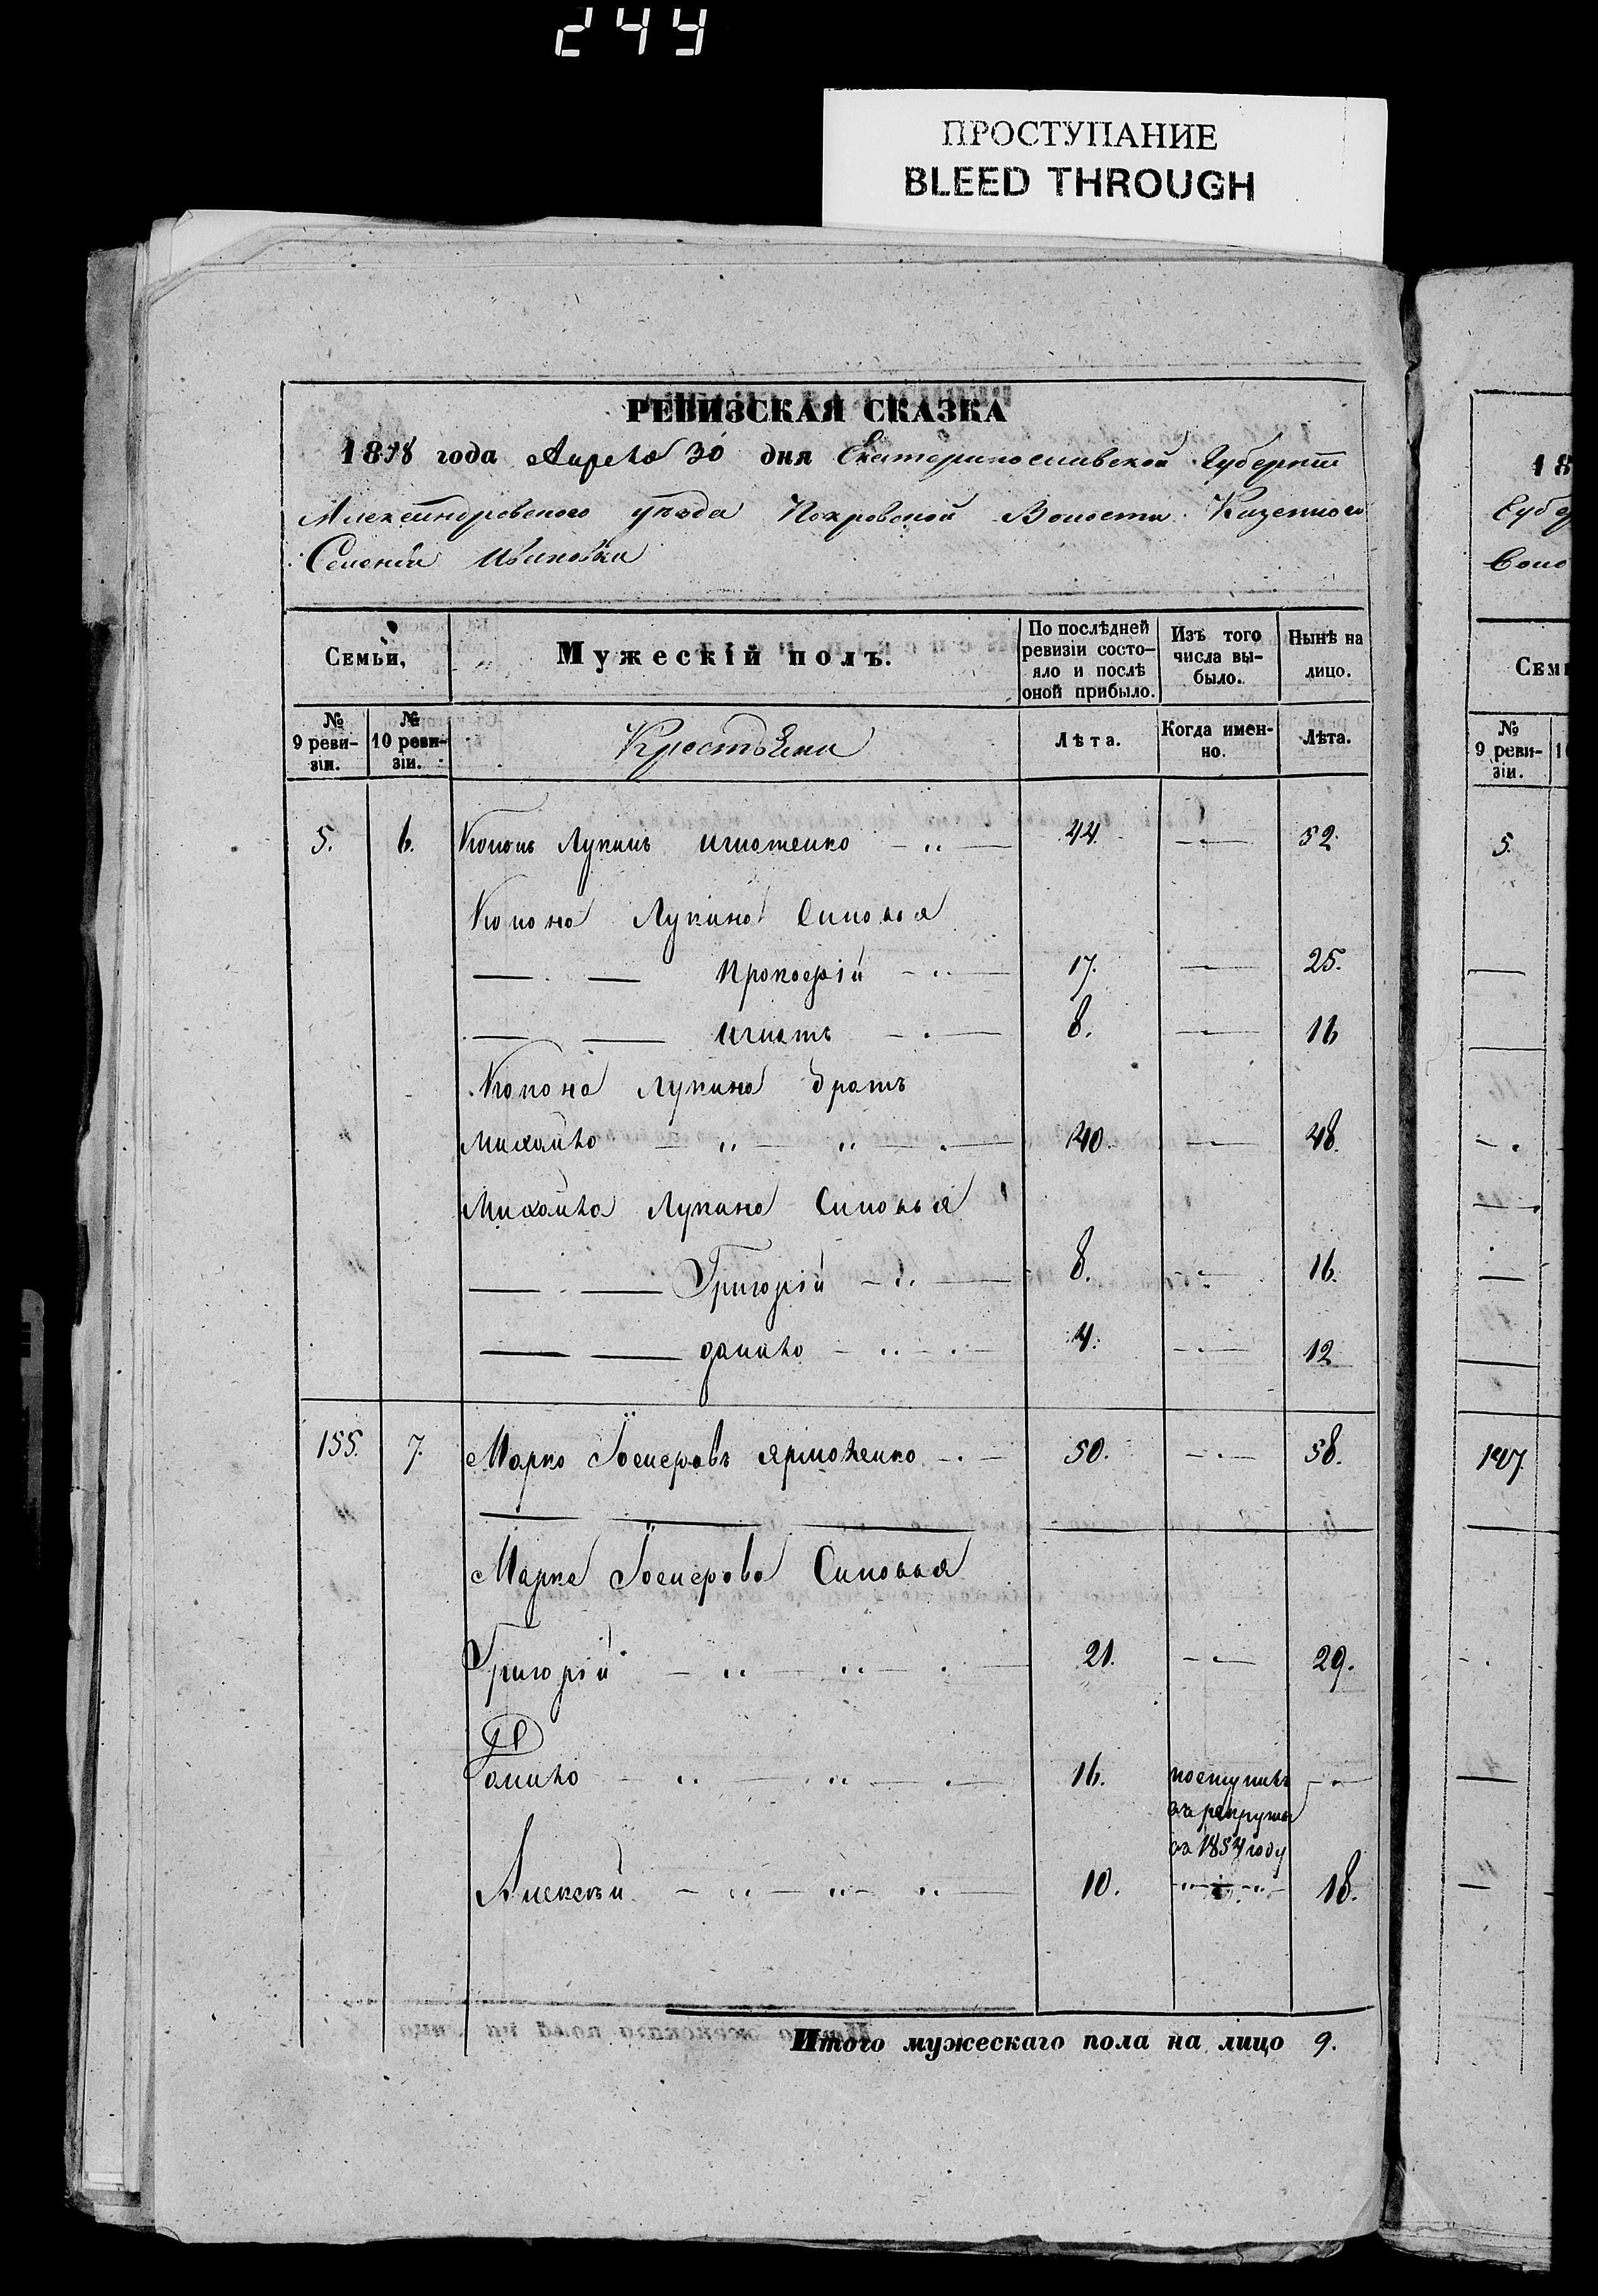 244
ПРОСТУПАНИЕ
BLEED THROUGH
РЕВИЗСКАЯ СКАЗКА
1858 года Апреля 30 дня Екатеринославской Губернии
Александровского уезда Покровской Волости Казенного
Селения Ивановки
Семьи,
Мужескій полъ.
По послѣдней ревизіи состояло и послѣ оной прибыло.
Изъ того числа выбыло.
Нынѣ на лицо.
№ 9 ревизіи.
№ 10 ревизіи.
Крестьяни
Лѣта.
Когда именно.
Лѣта.
5. 6. Кононъ Лукинъ Игнотенко 44. 52.
Конона Лукина Синовья
Прокофій 17. 25.
Игнатъ 8. 16
Конона Лукина братъ
Михайло 40. 48.
Михайла Лукина Синовья
Григорій 8. 16.
Данило 4. 12
155. 7. Марко 50. 58.
Марка Синовья
Григорій 21. 29.
Данило 16. поступилъ
въ рекруты
въ 1854 году
Алексей 10. 18.
Итого мужескаго пола на лицо 9.
18
Губер
Воло
Семь
№ 9 ревизіи.
5.
147.